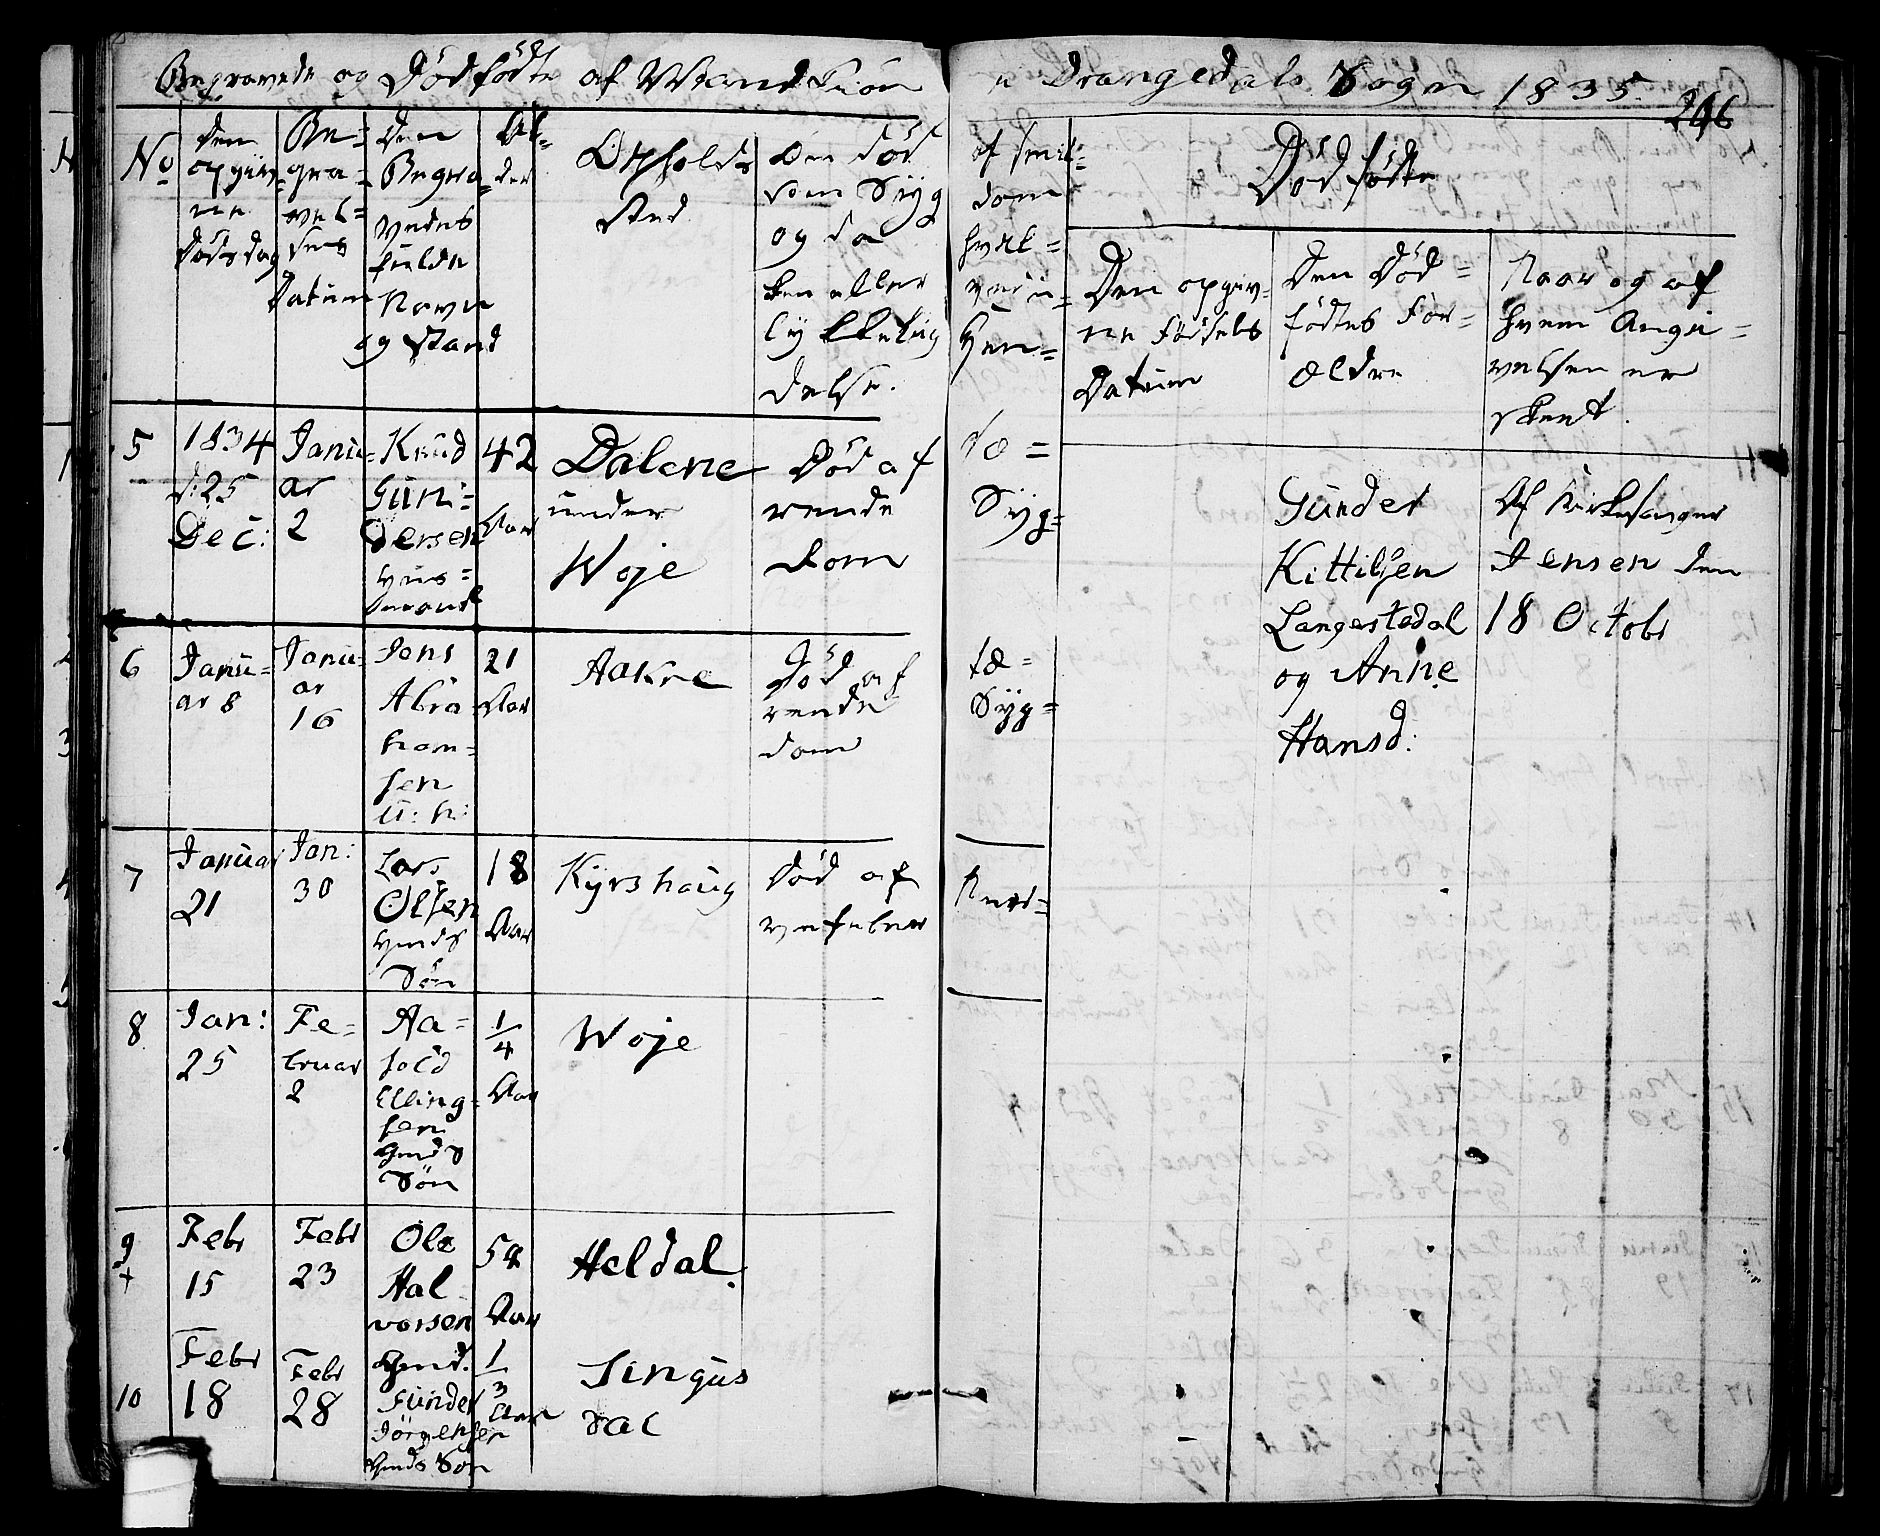 Begravede og Dødfødte af Mandkiøn i Drangedals Sogn 1835.
246
No
Den
opgivne
Dødsdag
Be=
gra=
vel=
sens
Datum
Den
Begra=
vedes
fulde
Navn
og Stand
Al=
der
Opholds
Sted
Om død
som Syg
og da
ken eller
lykkelig
delse.
af smit=
som
hvil=
ved u=
Hen=
Dødfødte
Den opgiv=
ne Fødsels
Datum
Den Død=
fødtes For=
ældre
Naar og af
hvem Angi=
velsen er
skeet.
5
1834
d: 25
Dec:
Janu=
ar
2
Knud
Gun=
dersen
Huus=
mand
42
Aar
Dalene
under
Woje
Død af
rende
dom
tæ=
Syg=
Gunder
Kittilsen
Langestedal
og Anne
Hansd:
Af Kirkesanger
Jensen den
18 Octobr
6
Janu=
ar 8
Janu=
ar
16
Jens
Abra
ham=
sen
U: h:
21
Aar
Aakre
Død af
rende
dom
tæ=
Syg=
7
Januar
21
Jan:
30
Lars
Olsen
Gmds
Søn
18
Aar
Kyrshaug
Død af
vefeber
Nerv=
8
Jan:
25
Fe=
bruar
2
Aa=
sold
Elling=
sen
Gmds
Søn
1/4
Aar
Woje
9
+
Febr
15
Febr
23
Ole
Hal
vorsen
Gmd.
54
Aar
Heldal.
10
Febr
18
Febr
28
Gunder
Jörgensen
Gmds Søn
1/3
Aar
Singus
dal